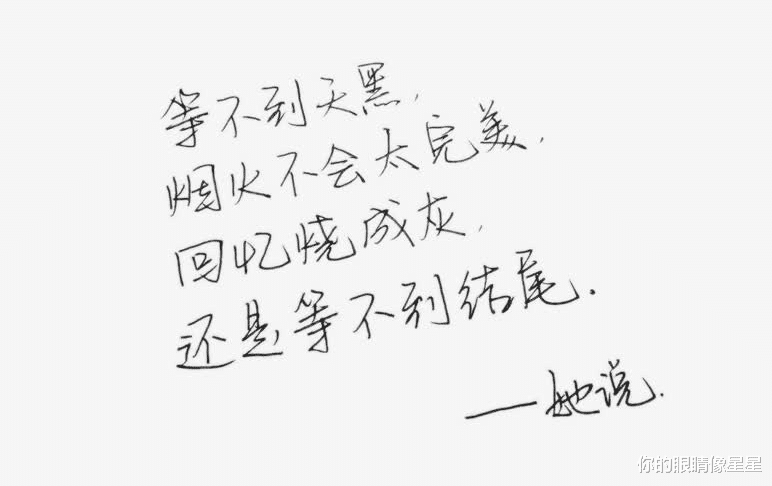 等不到天黑,
烟火不会太完美,
回忆烧成灰,
还是等不到结尾.
——她说.
你的眼睛像星星